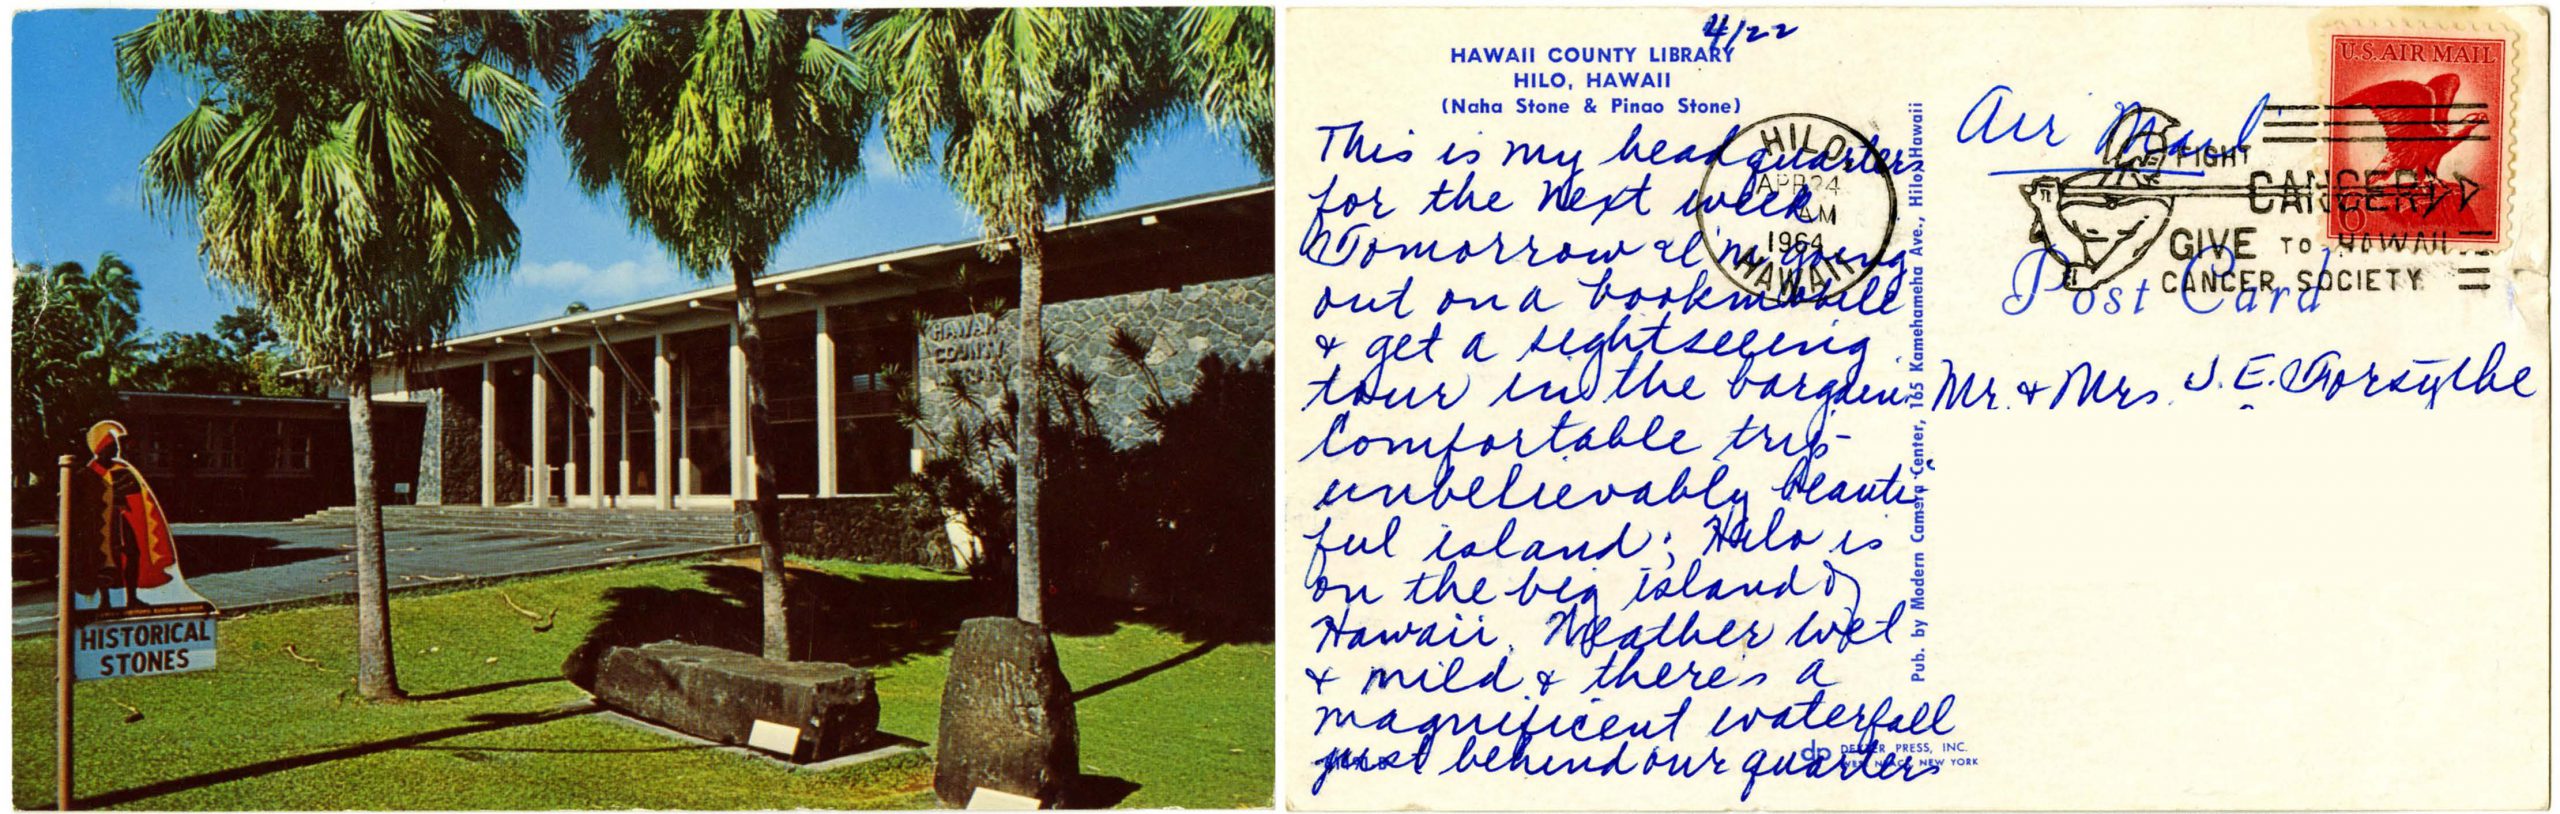 HAWAII
COUNTY
HISTORICAL
STONES
4/22
HAWAII COUNTY LIBRARY
HILO, HAWAII
(Naha Stone & Pinao Stone)
This is my headquarters
for the next week
Tomorrow I'm going
out on a bookmobile
& get a sightseeing
tour in the bargain.
Comfortable trip -
unbelievably beauti
ful island; Hilo is
on the big island of
Hawaii. Weather wet
& mild & there's a
magnificent waterfall
just behind our quarters
HILO
APR 24
AM
1964
HAWAII
Pub. by Modern Camera Center, 165 Kamehameha Ave., Hilo, Hawaii
dp DEXTER PRESS, INC.
WEST NYACK, NEW YORK
U.S. AIR MAIL
6
Air Mail
FIGHT
CANCER
GIVE TO HAWAII
CANCER SOCIETY
Post Card
Mr. & Mrs. J. E. Forsythe